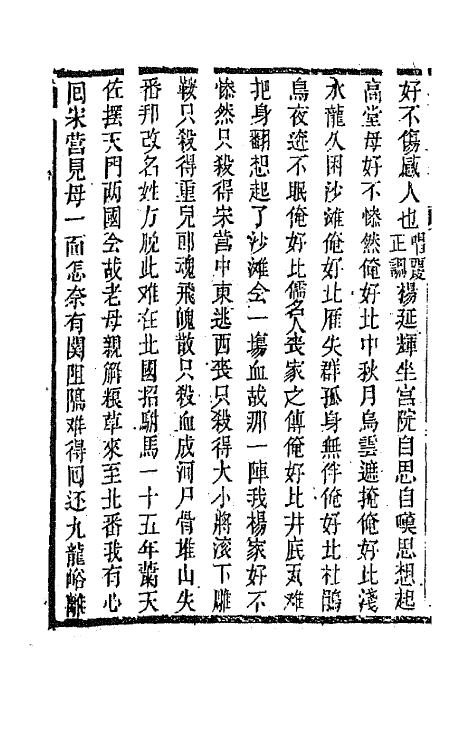 好不傷感人也唱慢正調楊延輝坐宮院自思自嘆思想起
高堂母好不慘然俺好比中秋月烏雲遮掩俺好比淺
水龍久困沙灘俺好比雁失群孤身無伴俺好比杜鵑
鳥夜迯不眠俺好比儒名人喪家之傳俺好比井底瓦难
把身翻想起了沙灘会一塲血战那一陣我楊家好不
慘然只殺得宋营中東逃西丧只殺得大小將滚下雕
鞍只殺得重兒郎魂飛魄散只殺血成河尸骨堆山失
番邦改名姓方脫此难在北國招駙馬一十五年蕭天
佐擺天門两國会战老母親解粮草來至北番我有心
囘宋营見母一面怎奈有関阻隔难得囘还九龍峪離